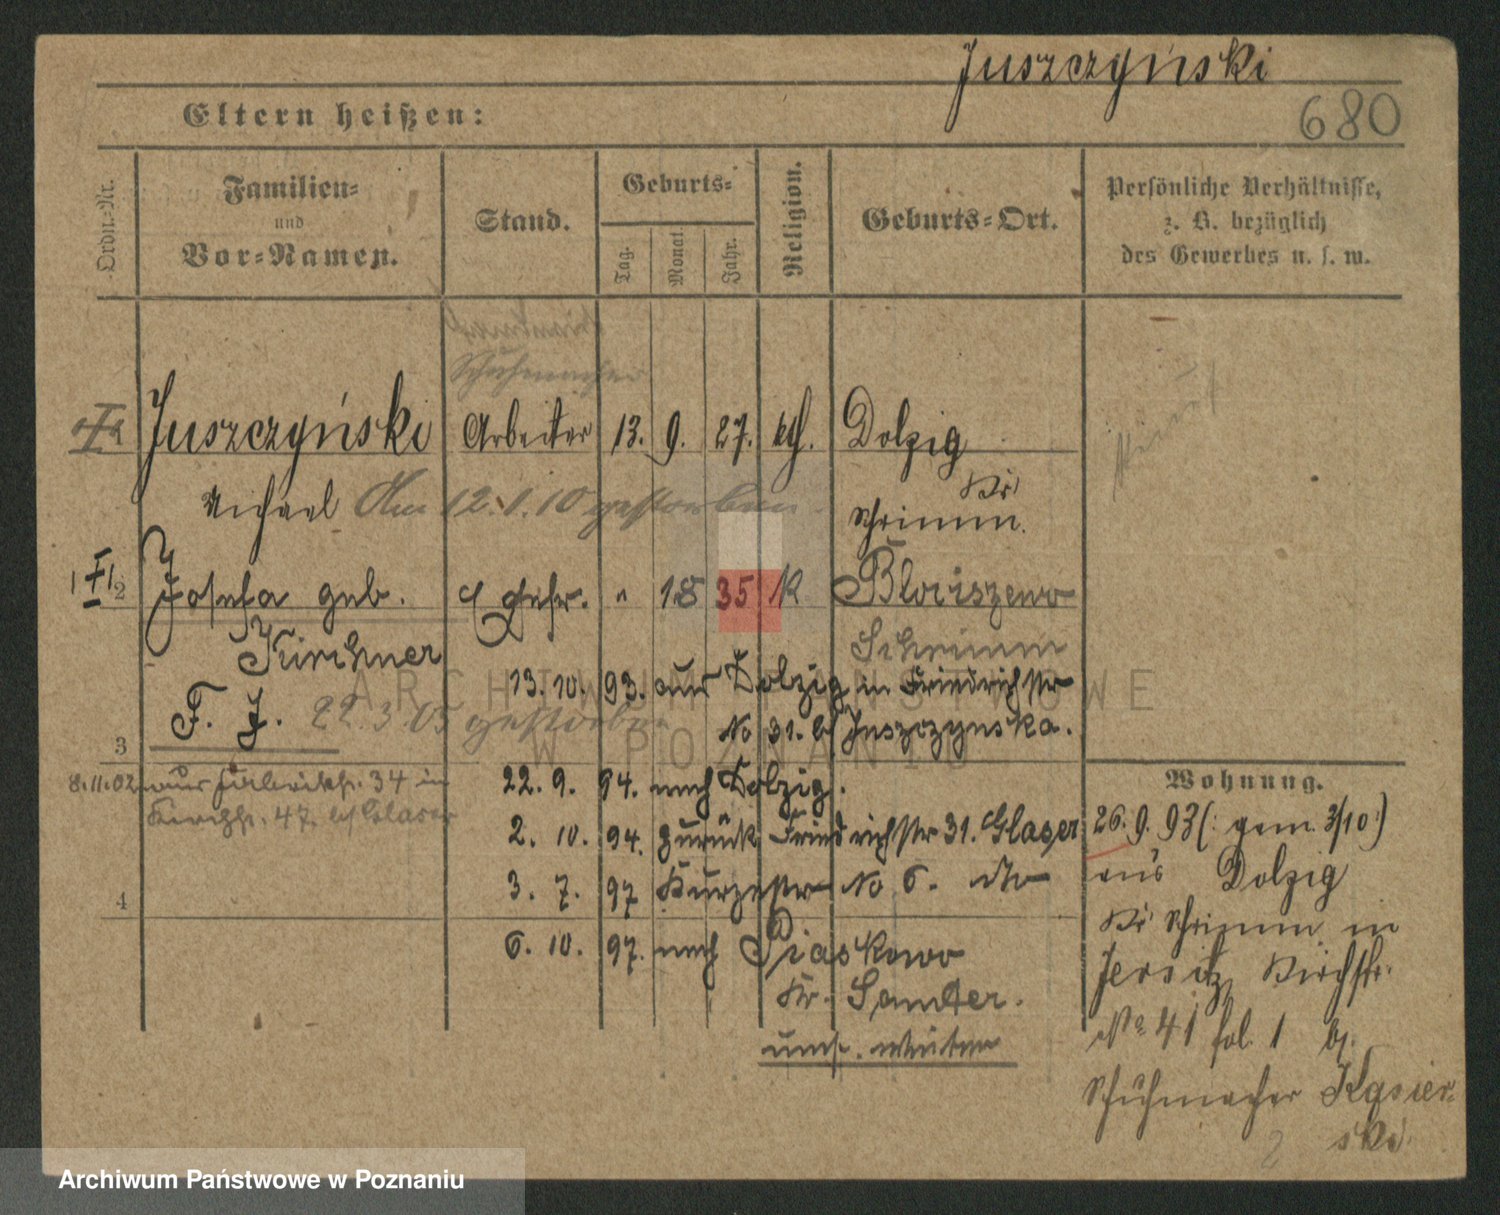 Juszczyński
680
Eltern heißen:
Ordn.-Nr.
Familien-
und
Vor-Namen.
Stand.
Geburts-
Tag.
Monat.
Jahr.
Religion.
Geburts-Ort.
Persönliche Verhältnisse,
z. B. bezüglich
des Gewerbes u. s. w.
Schuhmacher
Juszczyński Arbeiter 13. 9. 27. kth. Dolzig
Michael Am 12.1.10 gestorben. Kr
Schrimm.
2 Josefa geb. Ehefr. " 18 35 K
Kirchner Schrimm
13. 10. 93. aus Dolzig in Friedrichstr
F. J. 22.3.03 gestorben No 31. b/ Juszczynska.
3
Wohnung.
8.11.02 aus 34 in
Kirchstr. 47. b/ Glaser
22. 9. 94. nach Dolzig.
26. 9. 93 (: gem. 3/10 :)
2. 10. 94. zurück Friedrichstr 31. Glaser
aus Dolzig
3. 7. 97 Kurzestr No 6. dto
4
Kr Schrimm in
6. 10. 97. nach Piaskowo
Jersitz Kirchstr.
Kr. Samter.
No 41 fol. 1 b/
ums. weiter
Schuhmacher Kasier-
ski.
2
ARCHIWUM PAŃSTWOWE
W POZNANIU
Archiwum Państwowe w Poznaniu